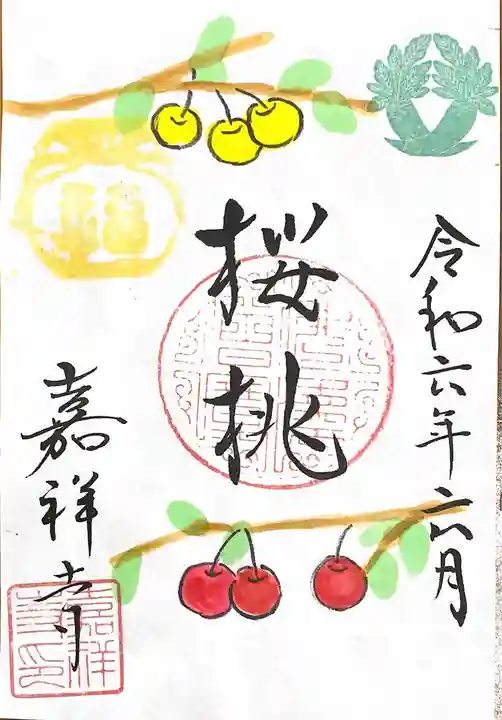 令和六年六月
桜桃
嘉祥寺
嘉祥寺印
福